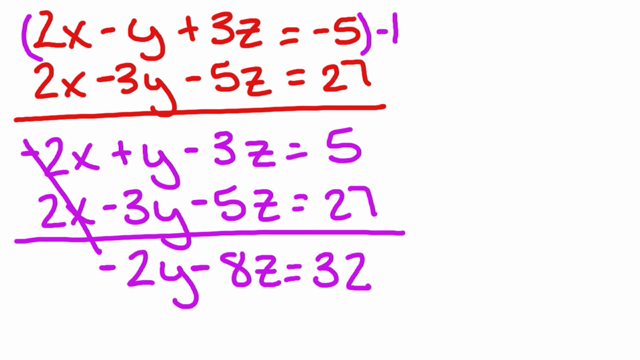 (2x - y + 3z = -5) -1
2x - 3y - 5z = 27
-2x + y - 3z = 5
2x - 3y - 5z = 27
-2y - 8z = 32